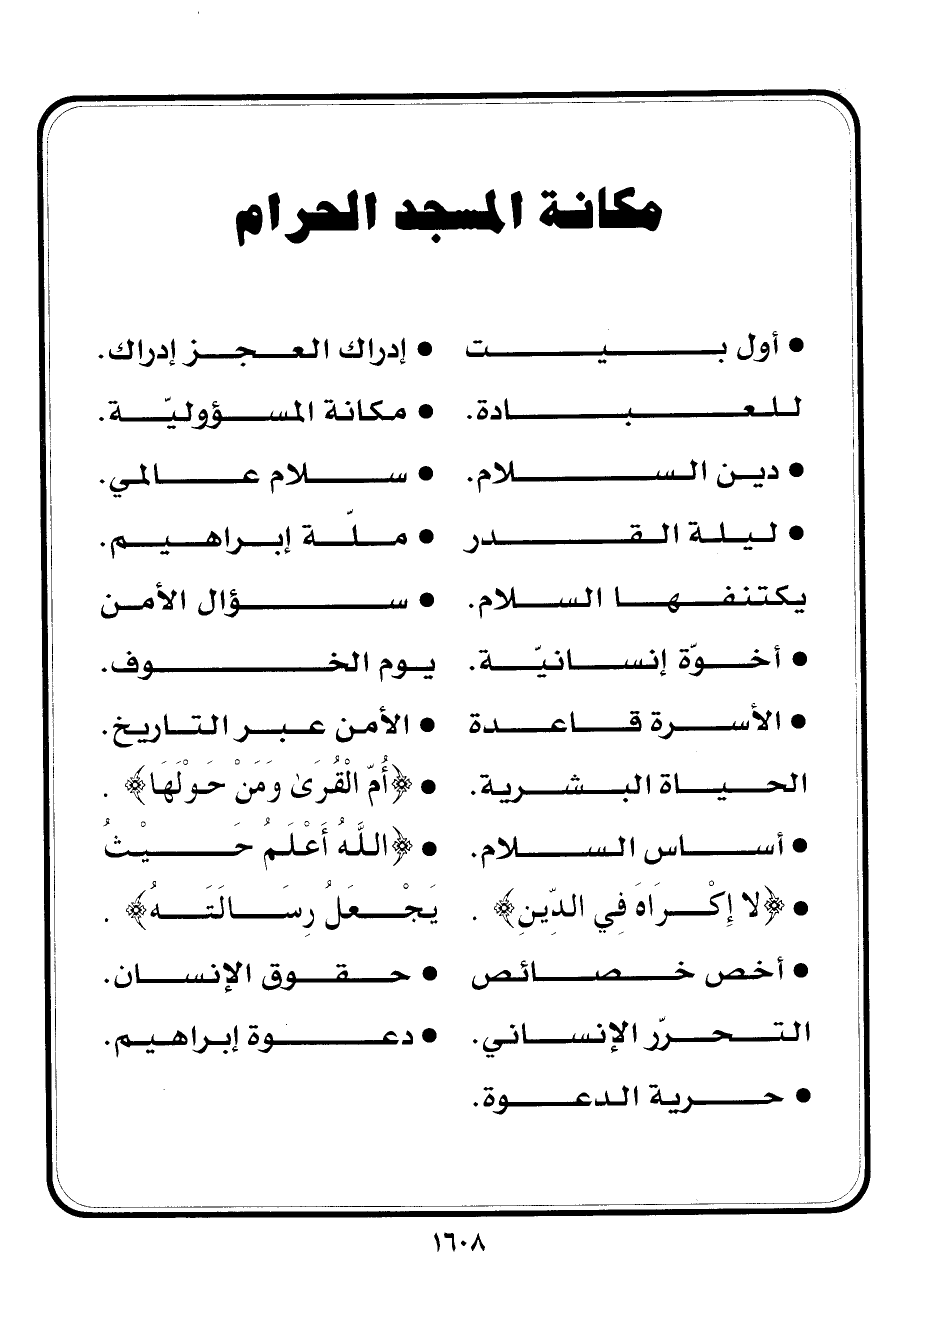 مكانة المسجد الحرام
● أول بيت
للعبادة.
● دين السلام.
● ليلة القدر
يكتنفها السلام.
● أخوّة إنسانيّة.
● الأسرة قاعدة
الحياة البشرية.
● أساس السلام.
● ﴿لا إِكْرَاهَ فِي الدِّينِ﴾ .
● أخص خصائص
التحرّر الإنساني.
● حرية الدعوة.
● إدراك العجز إدراك.
● مكانة المسؤوليّة.
● سلام عالمي.
● ملّة إبراهيم.
● سؤال الأمن
يوم الخوف.
● الأمن عبر التاريخ.
● ﴿أُمَّ الْقُرَىٰ وَمَنْ حَوْلَهَا﴾ .
● ﴿اللَّهُ أَعْلَمُ حَيْثُ
يَجْعَلُ رِسَالَتَهُ﴾ .
● حقوق الإنسان.
● دعوة إبراهيم.
١٦٠٨